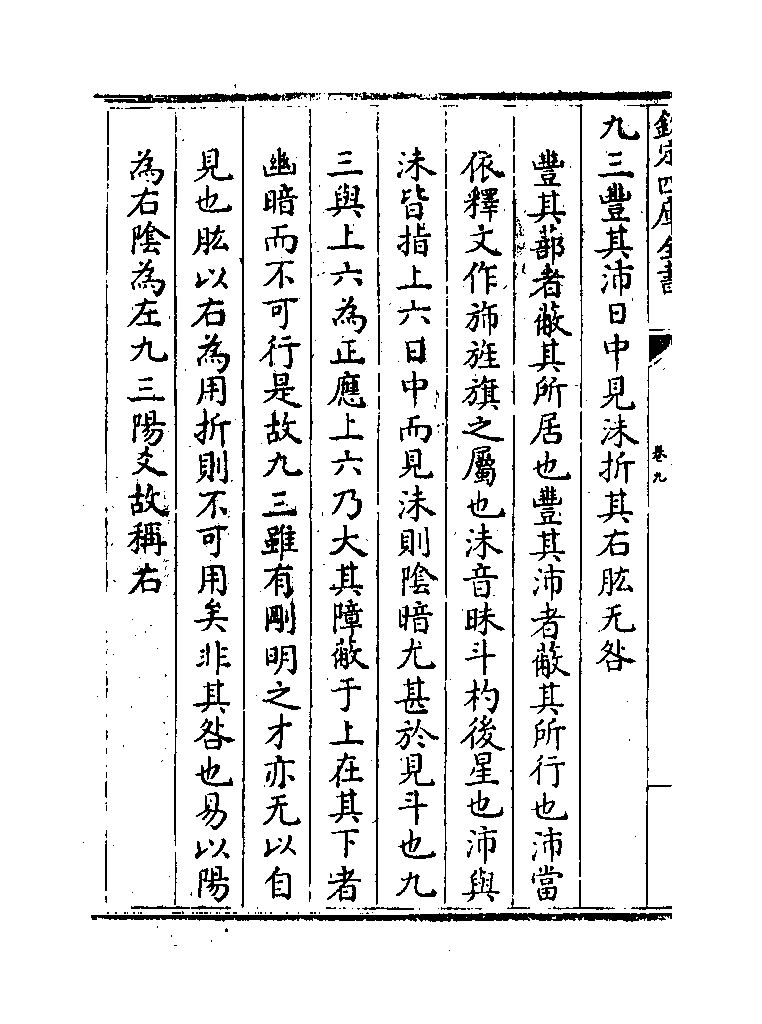 欽定四庫全書
卷九
九三豐其沛日中見沬折其右肱无咎
豐其蔀者蔽其所居也豐其沛者蔽其所行也沛當
依釋文作斾旌旗之屬也沬音昧斗杓後星也沛與
沬皆指上六日中而見沬則陰暗尤甚於見斗也九
三與上六為正應上六乃大其障蔽于上在其下者
幽暗而不可行是故九三雖有剛明之才亦无以自
見也肱以右為用折則不可用矣非其咎也易以陽
為右陰為左九三陽爻故稱右